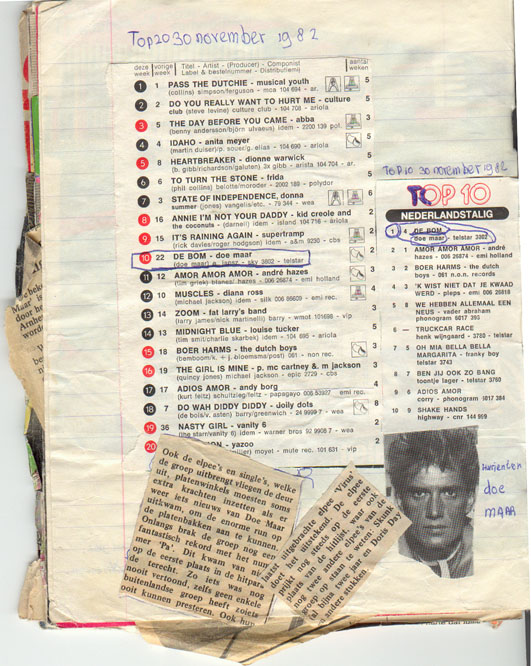 Top 20 30 november 1982
deze week
vorige week
Titel - Artist - (Producer) - Componist
Label & bestelnummer - Distributiemij
aantal weken
1 1 PASS THE DUTCHIE - musical youth 5
(collins) simpson/ferguson - mca 104 694 - ar.
2 2 DO YOU REALLY WANT TO HURT ME - culture 5
club (steve levine) culture club - 104 708 - ariola
3 5 THE DAY BEFORE YOU CAME - abba 3
(benny andersson/björn ulvaeus) idem - 2200 139 pol.
4 4 IDAHO - anita meyer 5
- 104 690 - ariola
5 8 HEARTBREAKER - dionne warwick 5
(b. gibb/richardson/galuten) 3x gibb - arista 104 704 - ar.
6 6 TO TURN THE STONE - frida 5
(phil collins) belotte/moroder - 2002 189 - polydor
7 3 STATE OF INDEPENDENCE, donna 6
summer (jones) vangelis/etc. - 79 344 - wea
8 16 ANNIE I'M NOT YOUR DADDY - kid creole and 2
the coconuts - (darnell) idem - island 104 716 - ariola
9 15 IT'S RAINING AGAIN - supertramp 2
(rick davies/roger hodgson) idem - a&m 9230 - cbs
10 22 DE BOM - doe maar 2
(doe maar) e. jansz - sky 3802 - telstar
11 12 AMOR AMOR AMOR - andré hazes 2
(tim griek) blanes/hazes - 006 26874 - emi holland
12 10 MUSCLES - diana ross 4
(michael jackson) idem - silk 006 86609 - emi rec.
13 14 ZOOM - fat larry's band 3
(larry james/nick martinelli) barry - wmot 101698 - vip
14 13 MIDNIGHT BLUE - louise tucker 5
(tim smit/charlie skarbek) idem - 104 695 - ariola
15 18 BOER HARMS - the dutch boys 3
(bemboom/k. + j. bloemsma/post) 061 - non rec.
16 19 THE GIRL IS MINE - p. mc cartney & m jackson 3
(quincy jones) michael jackson - epic 2729 - cbs
17 17 ADIOS AMOR - andy borg 4
(kurt feltz) schultzieg/feltz - papagayo 006 53927 emi rec.
18 7 DO WAH DIDDY DIDDY - dolly dots 8
(de bois/v. asten) barry/greenwich - 24 9999 7 - wea
19 36 NASTY GIRL - vanity 6 2
(the starr/vanity 6) idem - warner bros 92 9908 7 - wea
20 YAZOO - yazoo 2
moyet - mute rec. 101 631 - vip
Top 10 30 november 1982
TOP 10
NEDERLANDSTALIG
1 4 DE BOM
doe maar - telstar 3802
2 1 AMOR AMOR AMOR - andré
hazes - 006 26874 - emi holland
3 2 BOER HARMS - the dutch
boys - 061 n.o.n. records
4 3 'K WIST NIET DAT JE KWAAD
WERD - pleps - emi 006 26818
5 8 WE HEBBEN ALLEMAAL EEN
NEUS - vader abraham
phonogram 6017 395
6 — TRUCKCAR RACE
henk wijngaard - 3780 - telstar
7 5 OH MIA BELLA BELLA
MARGARITA - franky boy
telstar 3743
8 7 BEN JIJ OOK ZO BANG
toontje lager - telstar 3760
9 6 ADIOS AMOR
corry - phonogram 6017 384
10 9 SHAKE HANDS
highway - cnr 144 959
doe
MAAR
Ook de elpee's en single's, welke
de groep uitbrengt vliegen de deur
uit, platenwinkels moeten soms
extra krachten inzetten als er
weer iets nieuws van Doe Maar
uitkwam, om de enorme run op
de platenbakken aan te kunnen.
Onlangs brak de groep nog een
fantastisch rekord met het num
mer 'Pa'. Dit kwam van nie
op de eerste plaats in de hitpara
de terecht. Zo iets was nog
nooit vertoond, zelfs geen enkele
buitenlandse groep heeft zoiets
ooit kunnen presteren. Ook hun
laatst uitgebrachte elpee 'Virus'
doet het uitstekend. De elpee
prijkt nog steeds op de eerste
plaats van de hitlijst, maar ook
nog twee andere elpee's van de
groep op staan te weten, Skunk
(al bijna twee jaar) en Doris Day
en andere stukken